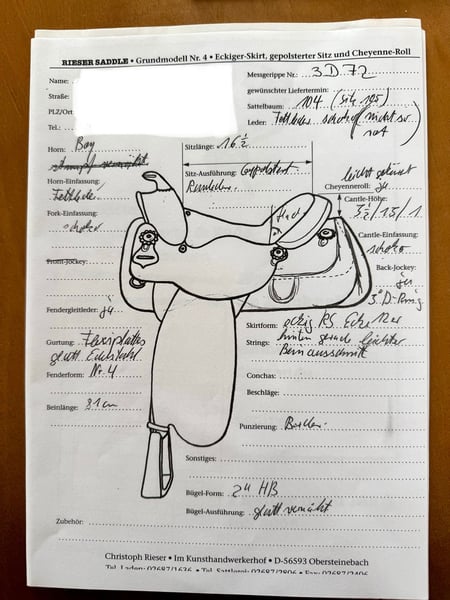 RIESER SADDLE • Grundmodell Nr. 4 • Eckiger-Skirt, gepolsterter Sitz und Cheyenne-Roll
Name:
Messgerippe Nr.: 3.D.72
Straße:
gewünschter Liefertermin:
PLZ/Ort
Sattelbaum: 104 (Sitz 105)
Tel.:
Leder: Fettleder schoko (nicht so rot)
Horn: Bay
stumpf vernickelt
Sitzlänge: 16 1/2
Horn-Einfassung: Fettleder
Sitz-Ausführung: gepolstert
Rindleder
leicht
Cheyenneroll: ja
Fork-Einfassung: schoko
Cantle-Höhe: 3 1/2 / 1.5 / 1
Cantle-Einfassung: schoko
Profil-Jockey:
Back-Jockey: ja
3 D-Ring
Fendergleitleder: ja
Skirtform: eckig RS Ecke 12er
Strings: hinten gerade leichter
Beinausschnitt
Gurtung: Flexplates
glatt Edelstahl
Fenderform: Nr. 4
Conchas:
Beschläge:
Beinlänge: 81 cm
Punzierung:
Sonstiges:
Bügel-Form: 2" HB
Bügel-Ausführung: glatt vernickelt
Zubehör:
Christoph Rieser • Im Kunsthandwerkerhof • D-56593 Obersteinebach
Tel. Laden: 02687/1636 • Tel. Sattlerei: 02687/2806 • Fax: 02687/2406